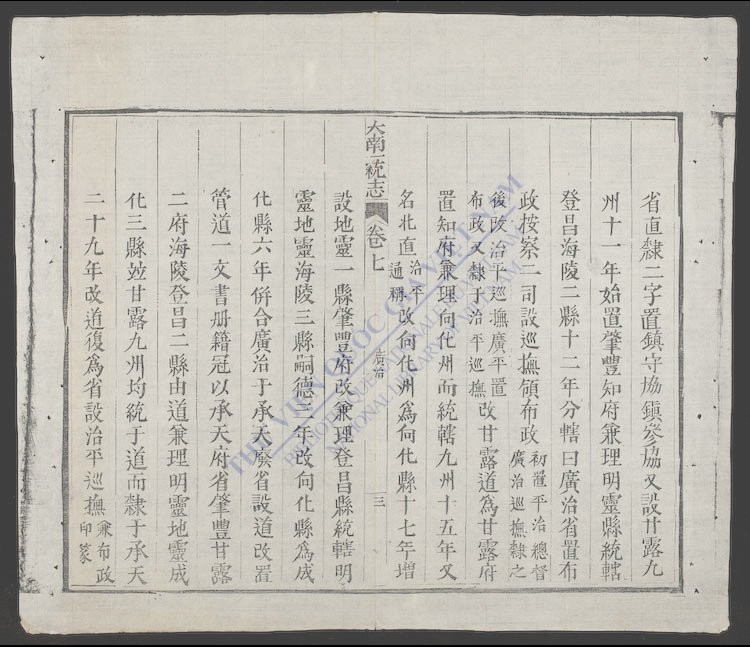 省直隸二字置鎮守協鎮參協又設甘露九
州十一年始置肇豐知府兼理明靈縣統轄
登昌海陵二縣十二年分轄曰廣治省置布
政按察二司設巡撫領布政初置平治總督廣治巡撫隸之
後改治平巡撫廣平置布政又隸于治平巡撫改甘露道為甘露府
置知府兼理向化州而統轄九州十五年又
名北直治平通稱改向化州為向化縣十七年增
大南一統志 卷七 廣治 三
設地靈一縣肇豐府改兼理登昌縣統轄明
靈地靈海陵三縣嗣德三年改向化縣為成
化縣六年併合廣治于承天廢省設道改置
管道一文書册籍冠以承天府省肇豐甘露
二府海陵登昌二縣由道兼理明靈地靈成
化三縣並甘露九州均統于道而隸于承天
二十九年改道復為省設治平巡撫兼布政印篆
THƯ VIỆN QUỐC GIA VIỆT NAM
BIBLIOTHÈQUE NATIONALE DU VIETNAM
NATIONAL LIBRARY OF VIETNAM